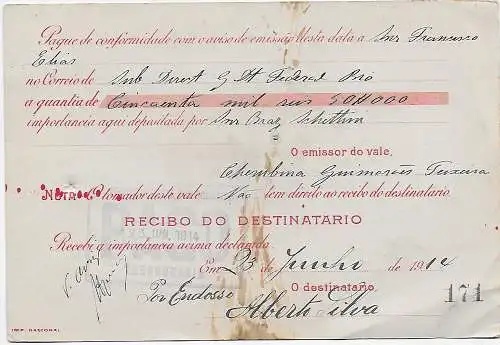 Pague de conformidade com o aviso de emissão desta data a Snr Francisco
Elias
no Correio de Sub Direct
a quantia de Cincoenta mil reis 50$000
importancia aqui depositada por Snr Braz Schettini
O emissor do vale,
Cherubina Guimarães Teixeira
NOTA O tomador deste vale Não tem direito ao recibo do destinatario.
RECIBO DO DESTINATARIO
Recebi a importancia acima declarada
Em 23 de Junho de 1914
Por Endosso
O destinatario,
Alberto Silva
171
IMP. NACIONAL